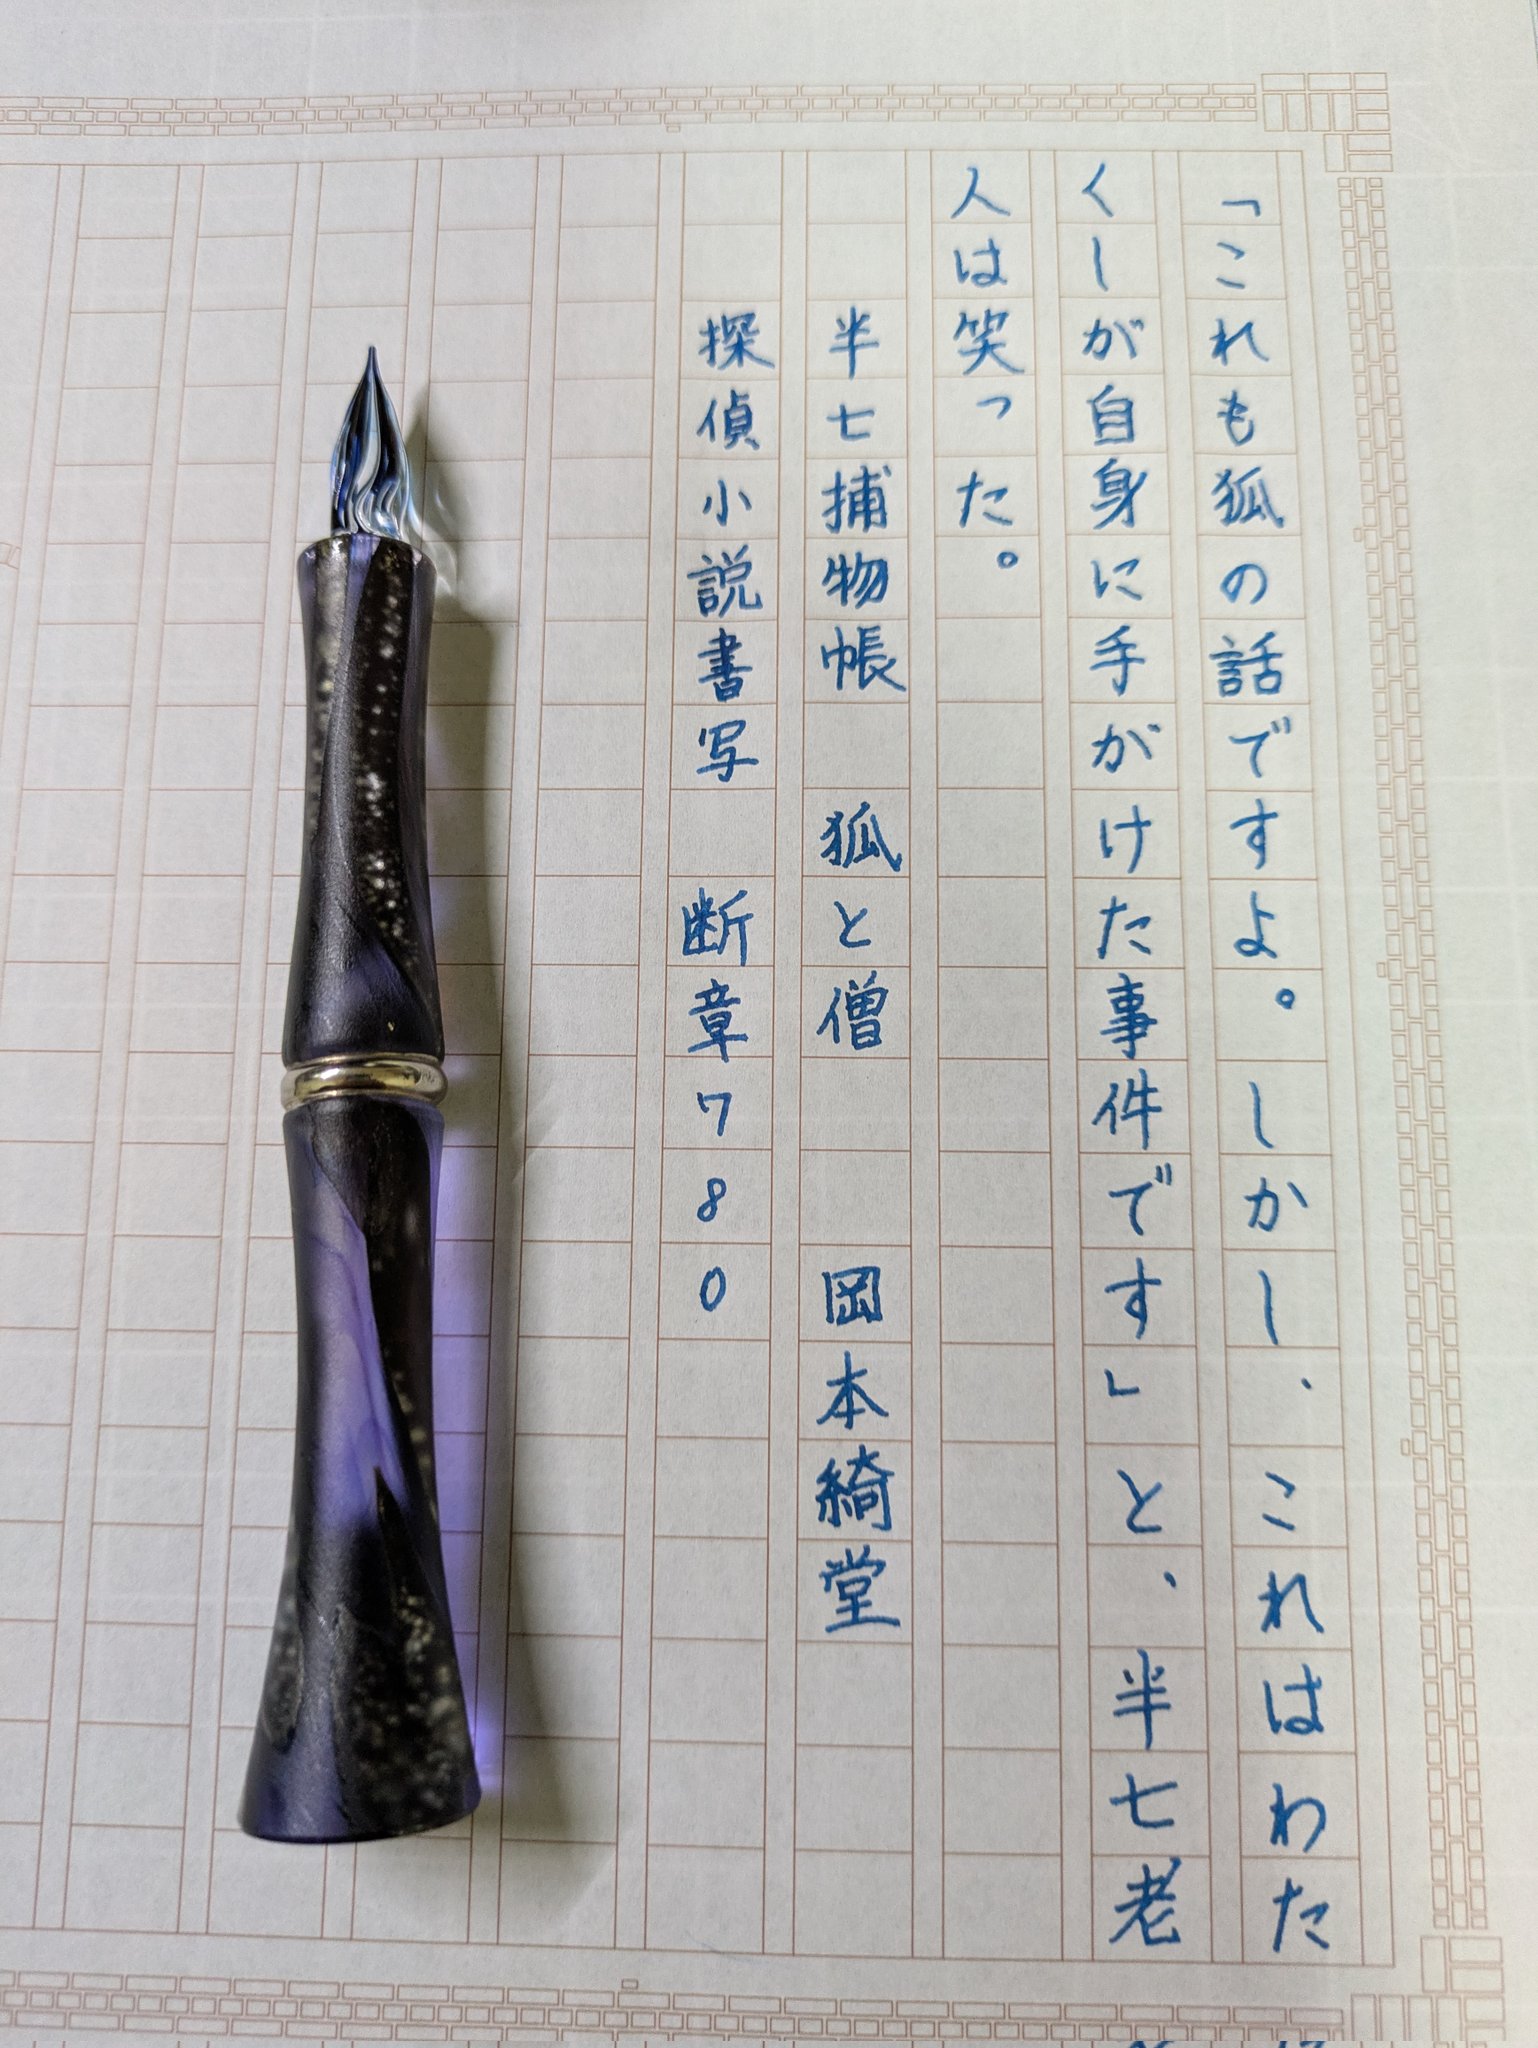 「これも狐の話ですよ。しかし、これはわた
くしが自身に手がけた事件です」と、半七老
人は笑った。
半七捕物帳　狐と僧　　岡本綺堂
探偵小説書写　断章７８０